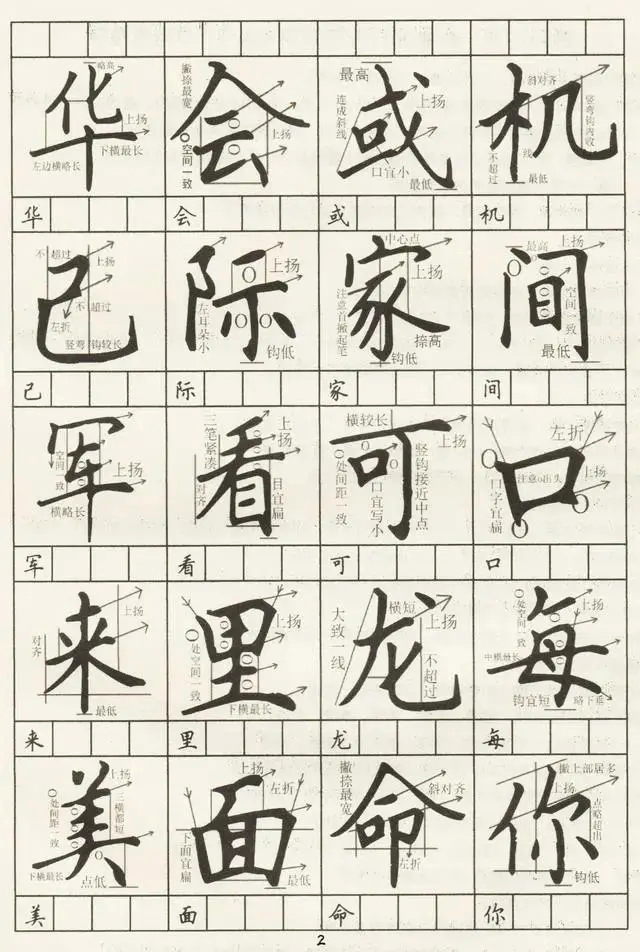 华 会 或 机
略高
上扬
下横最长
左边横略长
撇捺最宽
上扬
空间一致
最高
连成斜线
上扬
口宜小
最低
斜对齐
竖弯钩内收
不超过
一线
最低
华 会 或 机
己 际 家 间
不超过
上扬
不超过
左折
竖弯钩较长
上扬
左耳朵小
钩低
中心点
上扬
注意首撇起笔
捺高
钩低
最高
上扬
空间一致
最低
己 际 家 间
军 看 可 口
空间一致
上扬
横略长
三笔紧凑
上扬
对齐
目宜扁
横较长
上扬
O处间距一致
口宜写小
竖钩接近中点
左折
注意o出头
上扬
口字宜扁
军 看 可 口
来 里 龙 每
上扬
对齐
最低
上扬
O处空间一致
下横最长
大致一线
横短
上扬
不超过
O处空间一致
上扬
中横最长
钩宜短
略下垂
来 里 龙 每
美 面 命 你
上扬
O处间距一致
三横都短
下横最长
点低
上扬
左折
下面宜扁
最低
撇捺最宽
斜对齐
左折
撇上部居多
上扬
点略超出
钩低
美 面 命 你
2